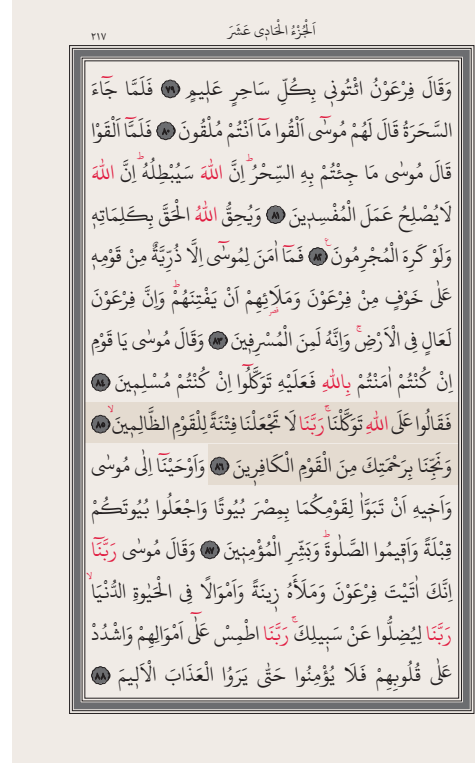 اَلْجُزْءُ الْحَادِى عَشَرَ
٢١٧
وَقَالَ فِرْعَوْنُ ائْتُونٖى بِكُلِّ سَاحِرٍ عَلٖيمٍ ﴿٧٩﴾ فَلَمَّا جَٓاءَ
السَّحَرَةُ قَالَ لَهُمْ مُوسٰٓى اَلْقُوا مَٓا اَنْتُمْ مُلْقُونَ ﴿٨٠﴾ فَلَمَّٓا اَلْقَوْا
قَالَ مُوسٰى مَا جِئْتُمْ بِهِ السِّحْرُۜ اِنَّ اللّٰهَ سَيُبْطِلُهُۜ اِنَّ اللّٰهَ
لَا يُصْلِحُ عَمَلَ الْمُفْسِدٖينَ ﴿٨١﴾ وَيُحِقُّ اللّٰهُ الْحَقَّ بِكَلِمَاتِهٖ
وَلَوْ كَرِهَ الْمُجْرِمُونَ۟ ﴿٨٢﴾ فَمَٓا اٰمَنَ لِمُوسٰٓى اِلَّا ذُرِّيَّةٌ مِنْ قَوْمِهٖ
عَلٰى خَوْفٍ مِنْ فِرْعَوْنَ وَمَلَا۬ئِهِمْ اَنْ يَفْتِنَهُمْۜ وَاِنَّ فِرْعَوْنَ
لَعَالٍ فِى الْاَرْضِۚ وَاِنَّهُ لَمِنَ الْمُسْرِفٖينَ ﴿٨٣﴾ وَقَالَ مُوسٰى يَا قَوْمِ
اِنْ كُنْتُمْ اٰمَنْتُمْ بِاللّٰهِ فَعَلَيْهِ تَوَكَّلُٓوا اِنْ كُنْتُمْ مُسْلِمٖينَ ﴿٨٤﴾
فَقَالُوا عَلَى اللّٰهِ تَوَكَّلْنَاۚ رَبَّنَا لَا تَجْعَلْنَا فِتْنَةً لِلْقَوْمِ الظَّالِمٖينَۙ ﴿٨٥﴾
وَنَجِّنَا بِرَحْمَتِكَ مِنَ الْقَوْمِ الْكَافِرٖينَ ﴿٨٦﴾ وَاَوْحَيْنَٓا اِلٰى مُوسٰى
وَاَخٖيهِ اَنْ تَبَوَّاٰ لِقَوْمِكُمَا بِمِصْرَ بُيُوتًا وَاجْعَلُوا بُيُوتَكُمْ
قِبْلَةً وَاَقٖيمُوا الصَّلٰوةَۜ وَبَشِّرِ الْمُؤْمِنٖينَ ﴿٨٧﴾ وَقَالَ مُوسٰى رَبَّنَٓا
اِنَّكَ اٰتَيْتَ فِرْعَوْنَ وَمَلَاَهُ زٖينَةً وَاَمْوَالًا فِى الْحَيٰوةِ الدُّنْيَاۙ
رَبَّنَا لِيُضِلُّوا عَنْ سَبٖيلِكَۚ رَبَّنَا اطْمِسْ عَلٰٓى اَمْوَالِهِمْ وَاشْدُدْ
عَلٰى قُلُوبِهِمْ فَلَا يُؤْمِنُوا حَتّٰى يَرَوُا الْعَذَابَ الْاَلٖيمَ ﴿٨٨﴾